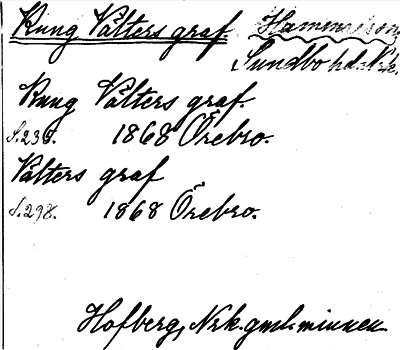 Kung Välters graf Hammarsons
Sundbo hd. Nke.
Kung Välters graf.
S.235. 1868 Örebro.
Välters graf
S.298. 1868 Örebro.
Hofberg, Nrk. gml. minnen